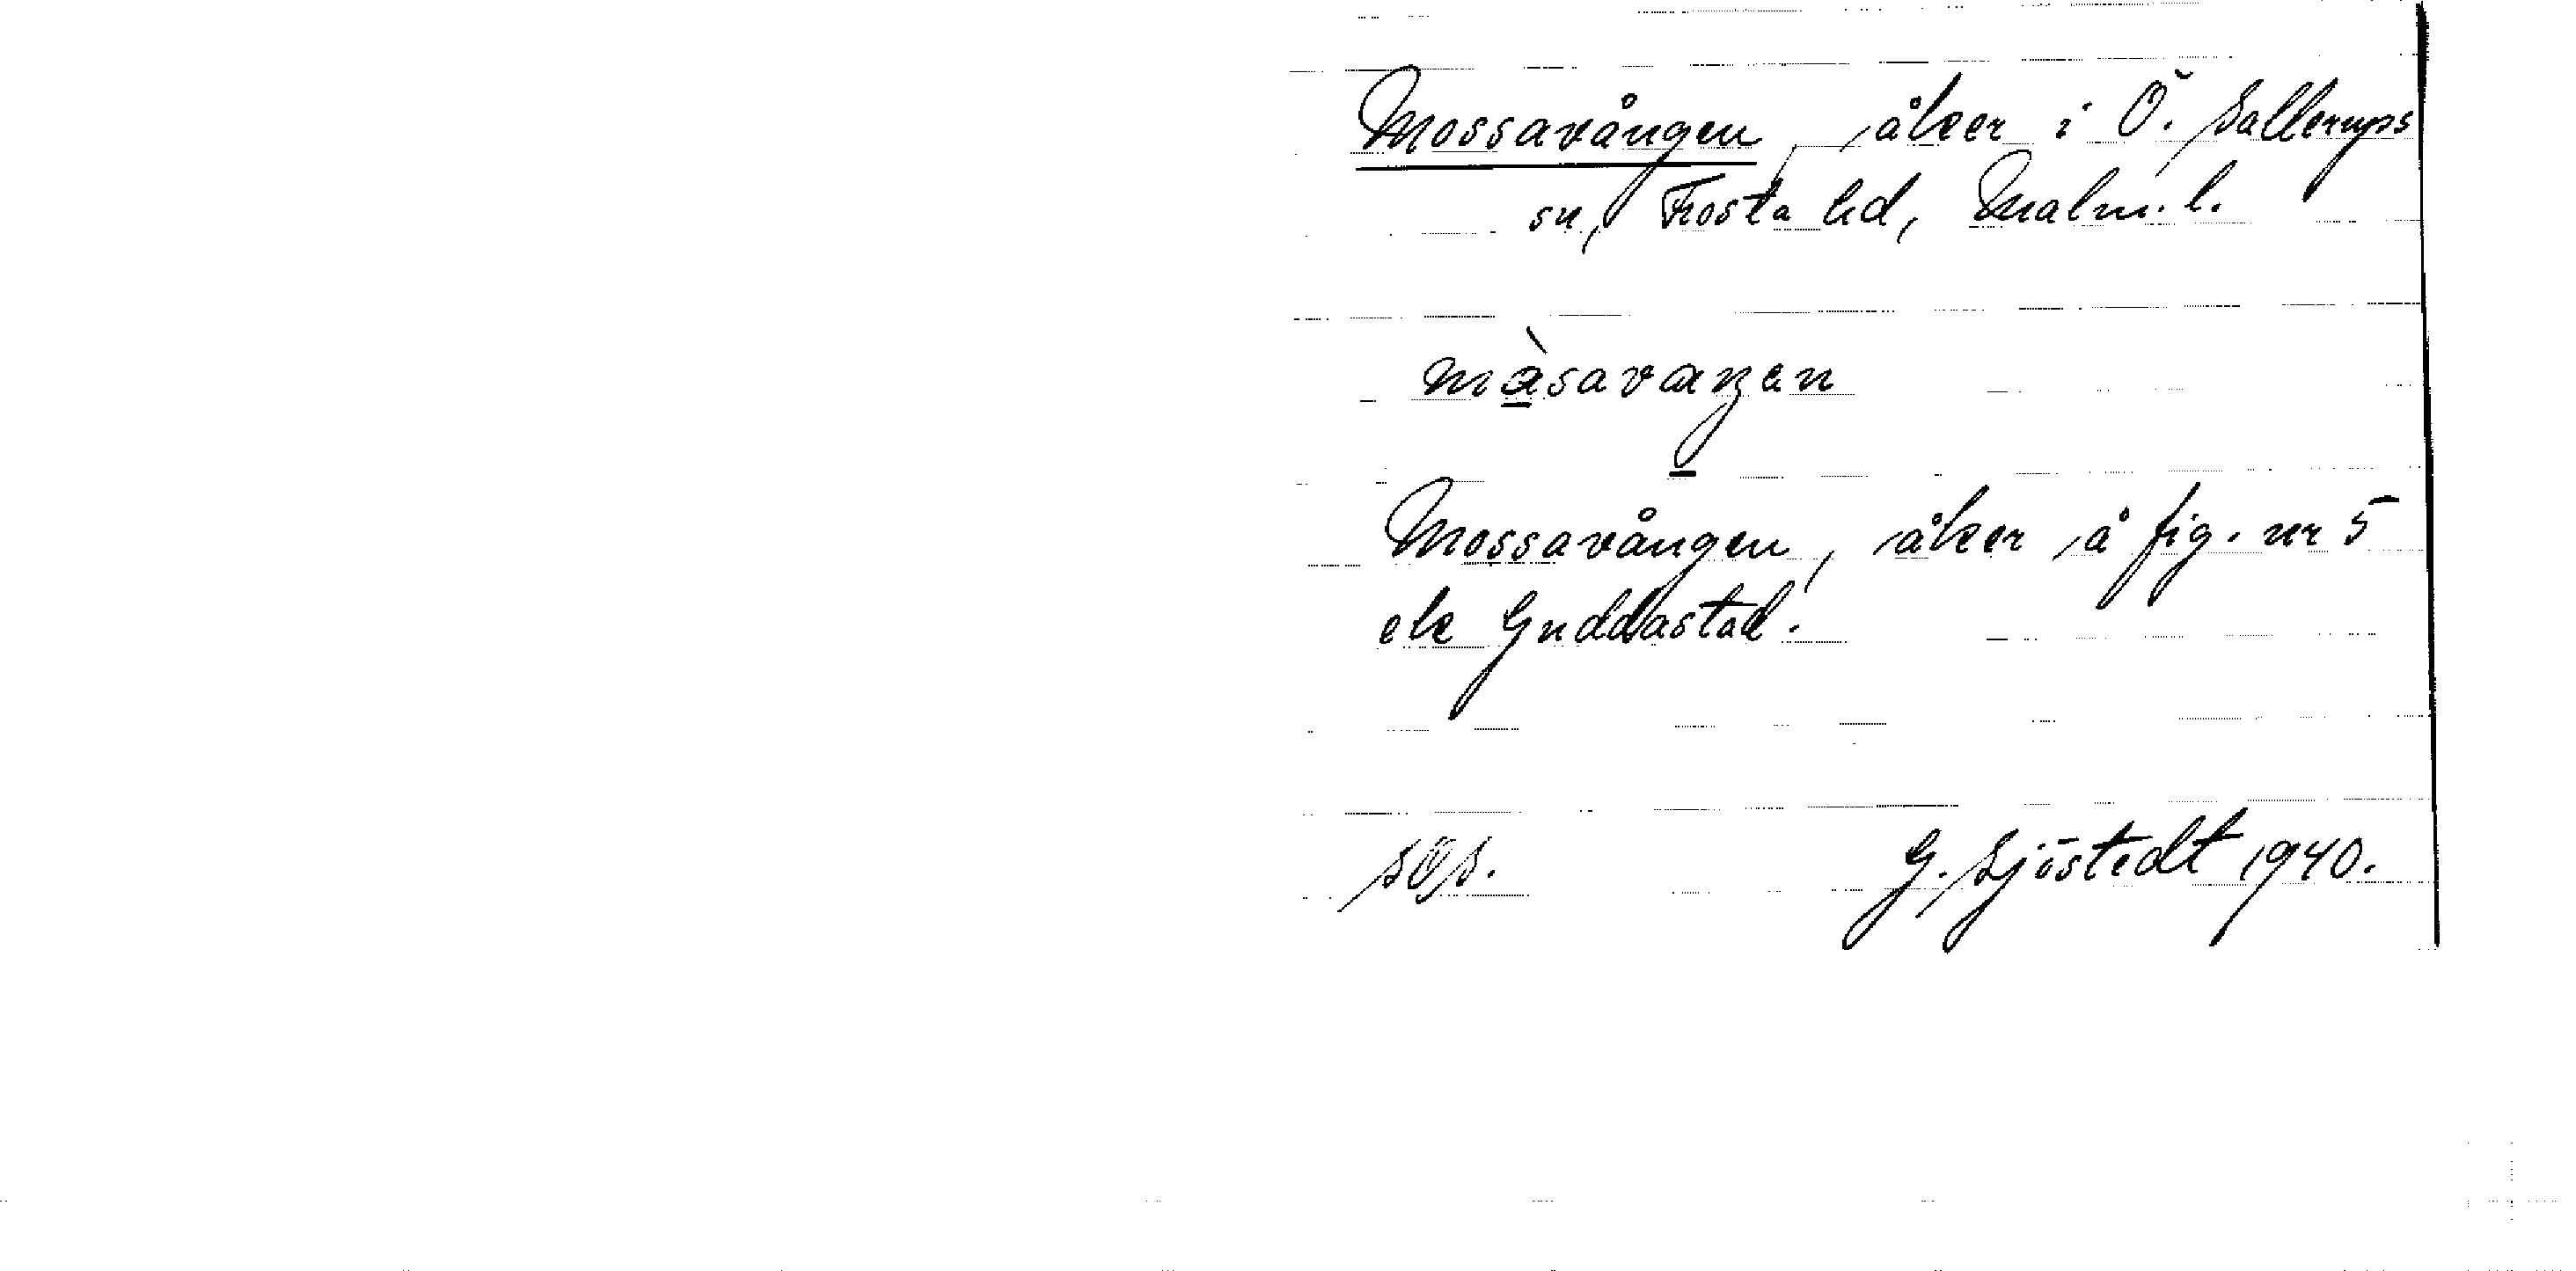 Mossavången, åker i Ö. Sallerups
sn, Frosta hd, Malm. l.
màsavaŋen
Mossavången, åker å fig. nr 5
ek Guddastad.
SOS. G. Sjöstedt 1940.